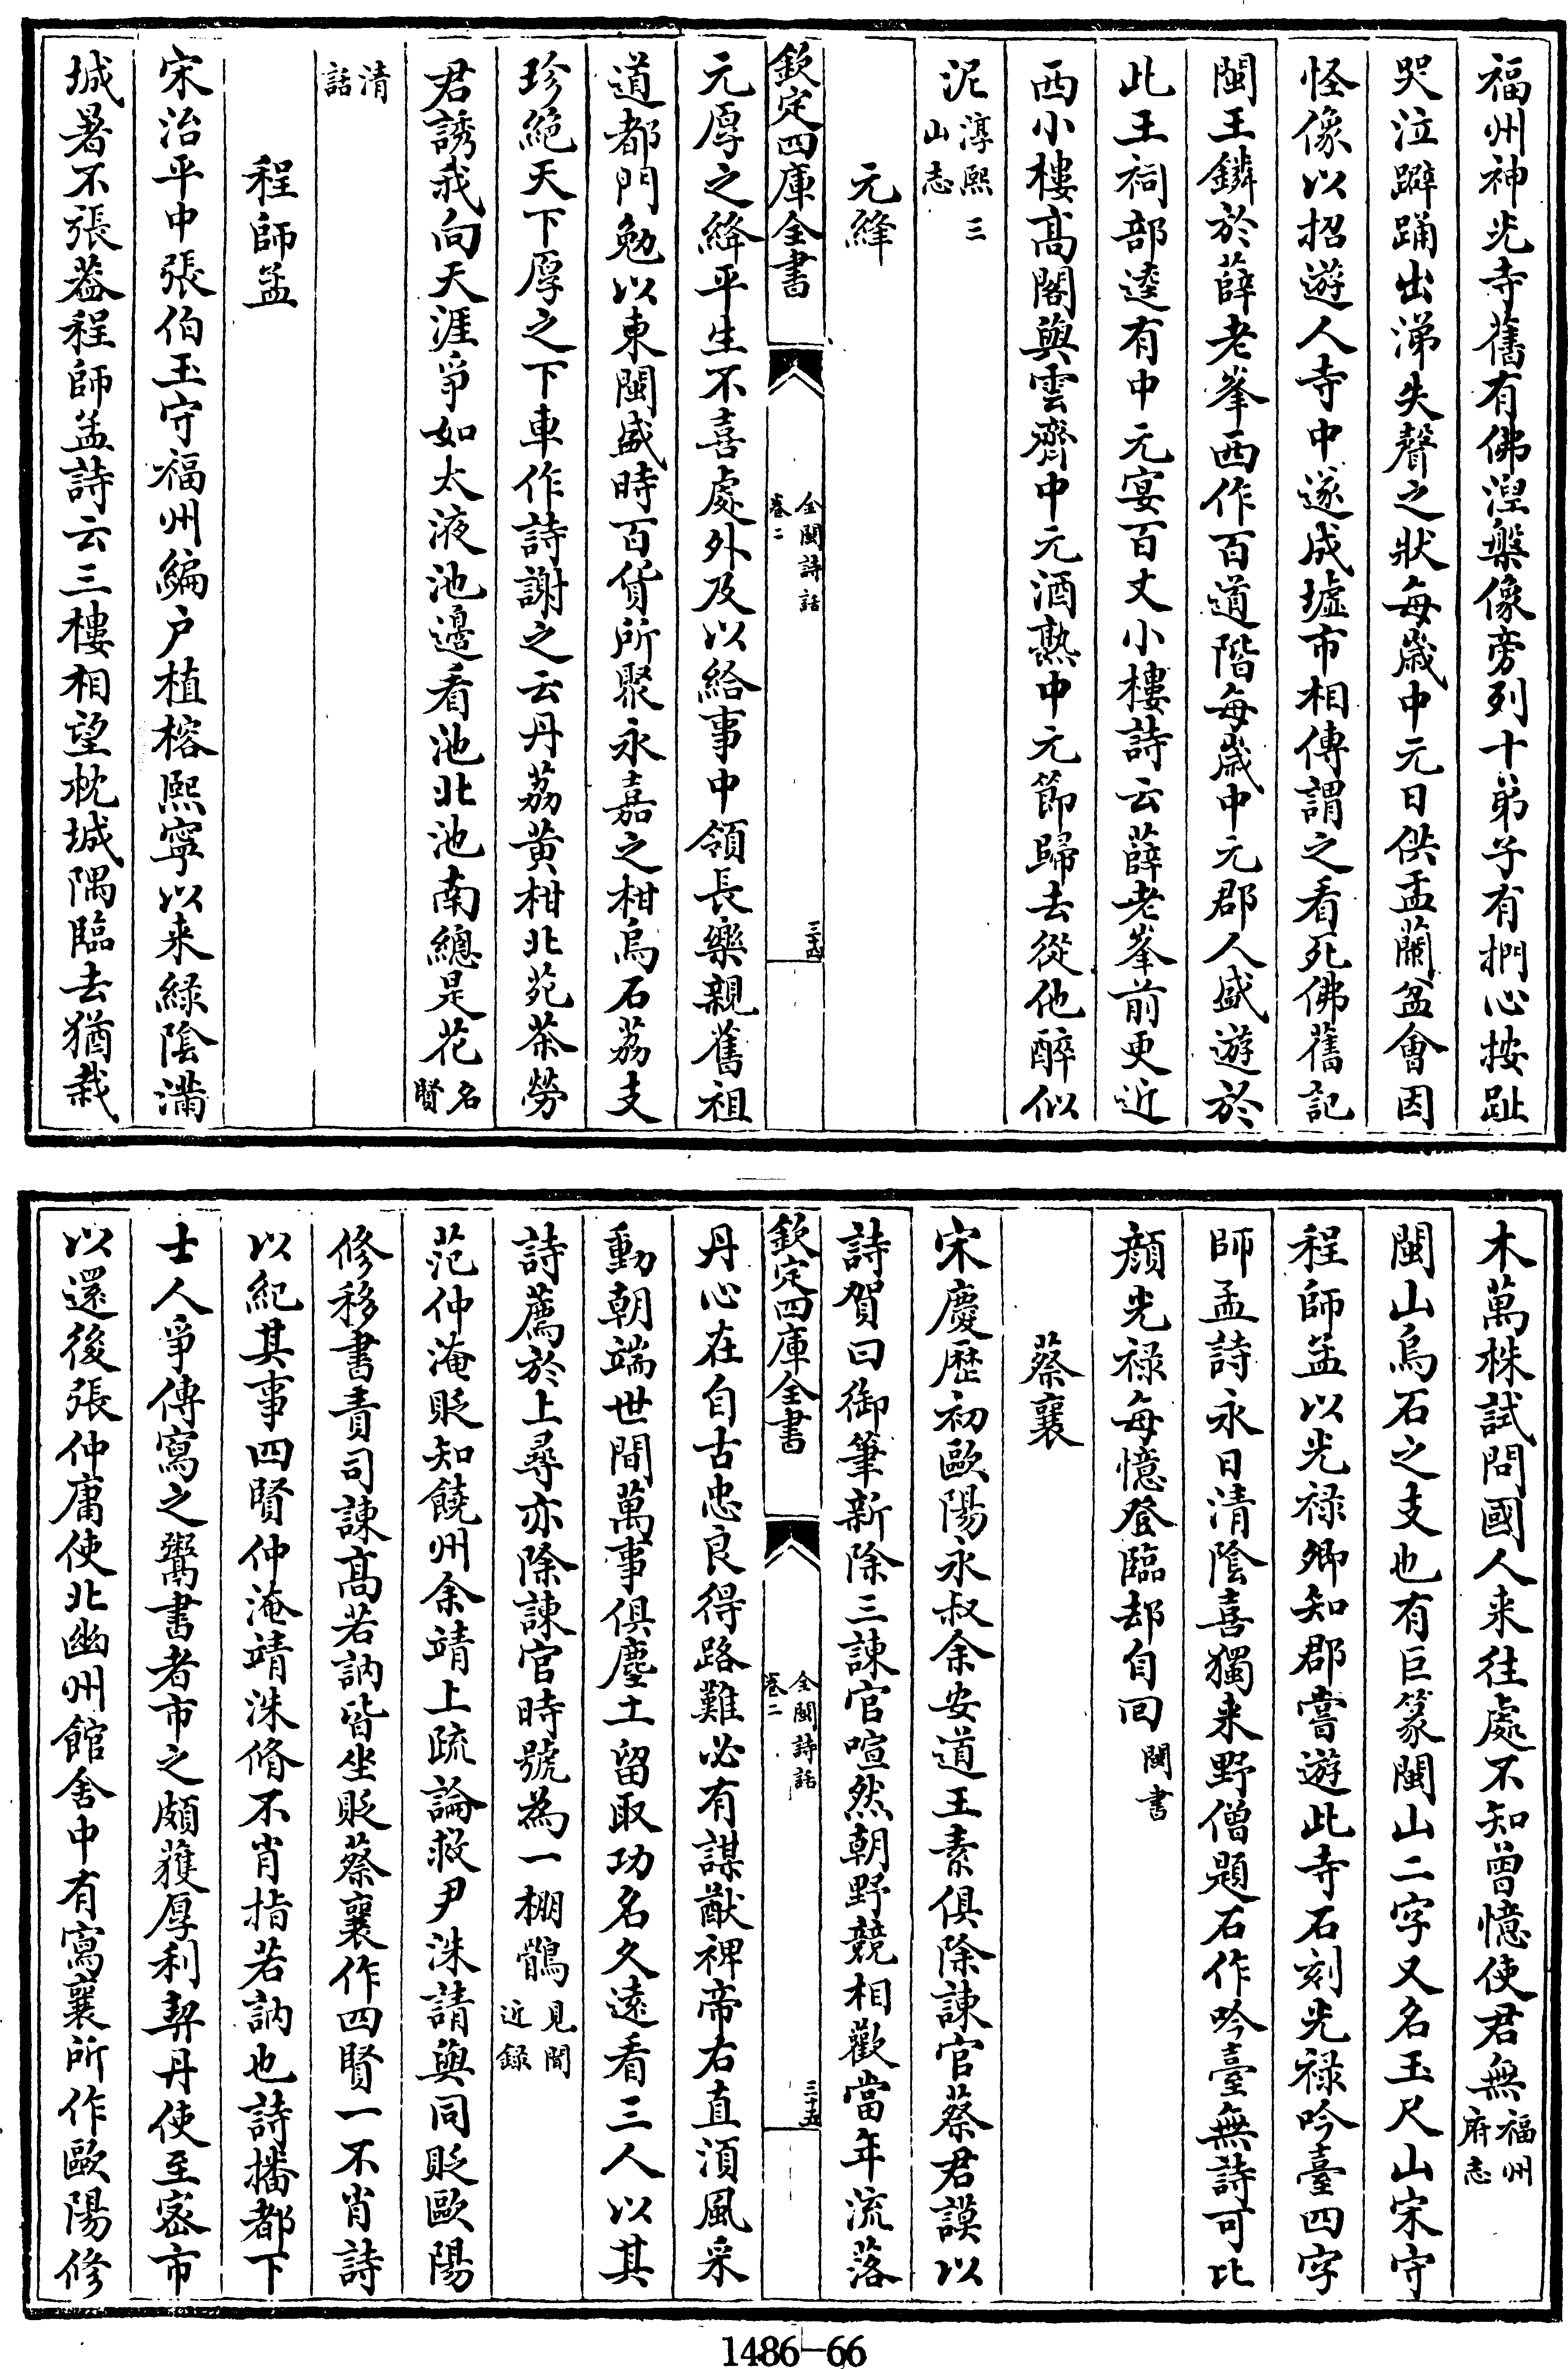 福州神光寺舊有佛湼槃像旁列十弟子有捫心按趾
哭泣躃踊出涕失聲之狀每歲中元日供盂蘭盆會因
怪像以招遊人寺中遂成墟市相傳謂之看死佛舊記
閩王鏻於薛老峯西作百道階每歲中元郡人盛遊於
此王祠部逵有中元宴百丈小樓詩云薛老峯前更近
西小樓髙閣與雲齊中元酒熟中元節歸去從他醉似
泥淳熙三山志
元絳
欽定四庫全書
全閩詩話
卷二
三十四
元厚之絳平生不喜處外及以給事中領長樂親舊祖
道都門勉以東閩盛時百貨所聚永嘉之柑烏石荔支
珍絶天下厚之下車作詩謝之云丹荔黄柑北苑茶勞
君誘我向天涯爭如太液池邉看池北池南總是花名賢
清話
程師孟
宋治平中張伯玉守福州編户植榕熙寧以来緑陰滿
城暑不張葢程師孟詩云三樓相望枕城隅臨去猶栽
木萬株試問國人来往處不知曾憶使君無福州府志
閩山烏石之支也有巨篆閩山二字又名玉尺山宋守
程師孟以光禄卿知郡嘗遊此寺石刻光禄吟臺四字
師孟詩永日清陰喜獨来野僧題石作吟臺無詩可比
顔光禄每憶登臨却自回閩書
蔡襄
宋慶歴初歐陽永叔余安道王素俱除諫官蔡君謨以
詩賀曰御筆新除三諫官喧然朝野競相歡當年流落
欽定四庫全書
全閩詩話
卷二
三十五
丹心在自古忠良得路難必有謀猷裨帝右直湏風采
動朝端世間萬事俱塵土留取功名久遠看三人以其
詩薦於上尋亦除諫官時號為一棚鶻見聞近録
范仲淹貶知饒州余靖上疏論救尹洙請與同貶歐陽
修移書責司諫髙若訥皆坐貶蔡襄作四賢一不肖詩
以紀其事四賢仲淹靖洙脩不肖指若訥也詩播都下
士人爭傳寫之鬻書者市之頗獲厚利契丹使至密市
以還後張仲庸使北幽州館舍中有寫襄所作歐陽修
1486-66